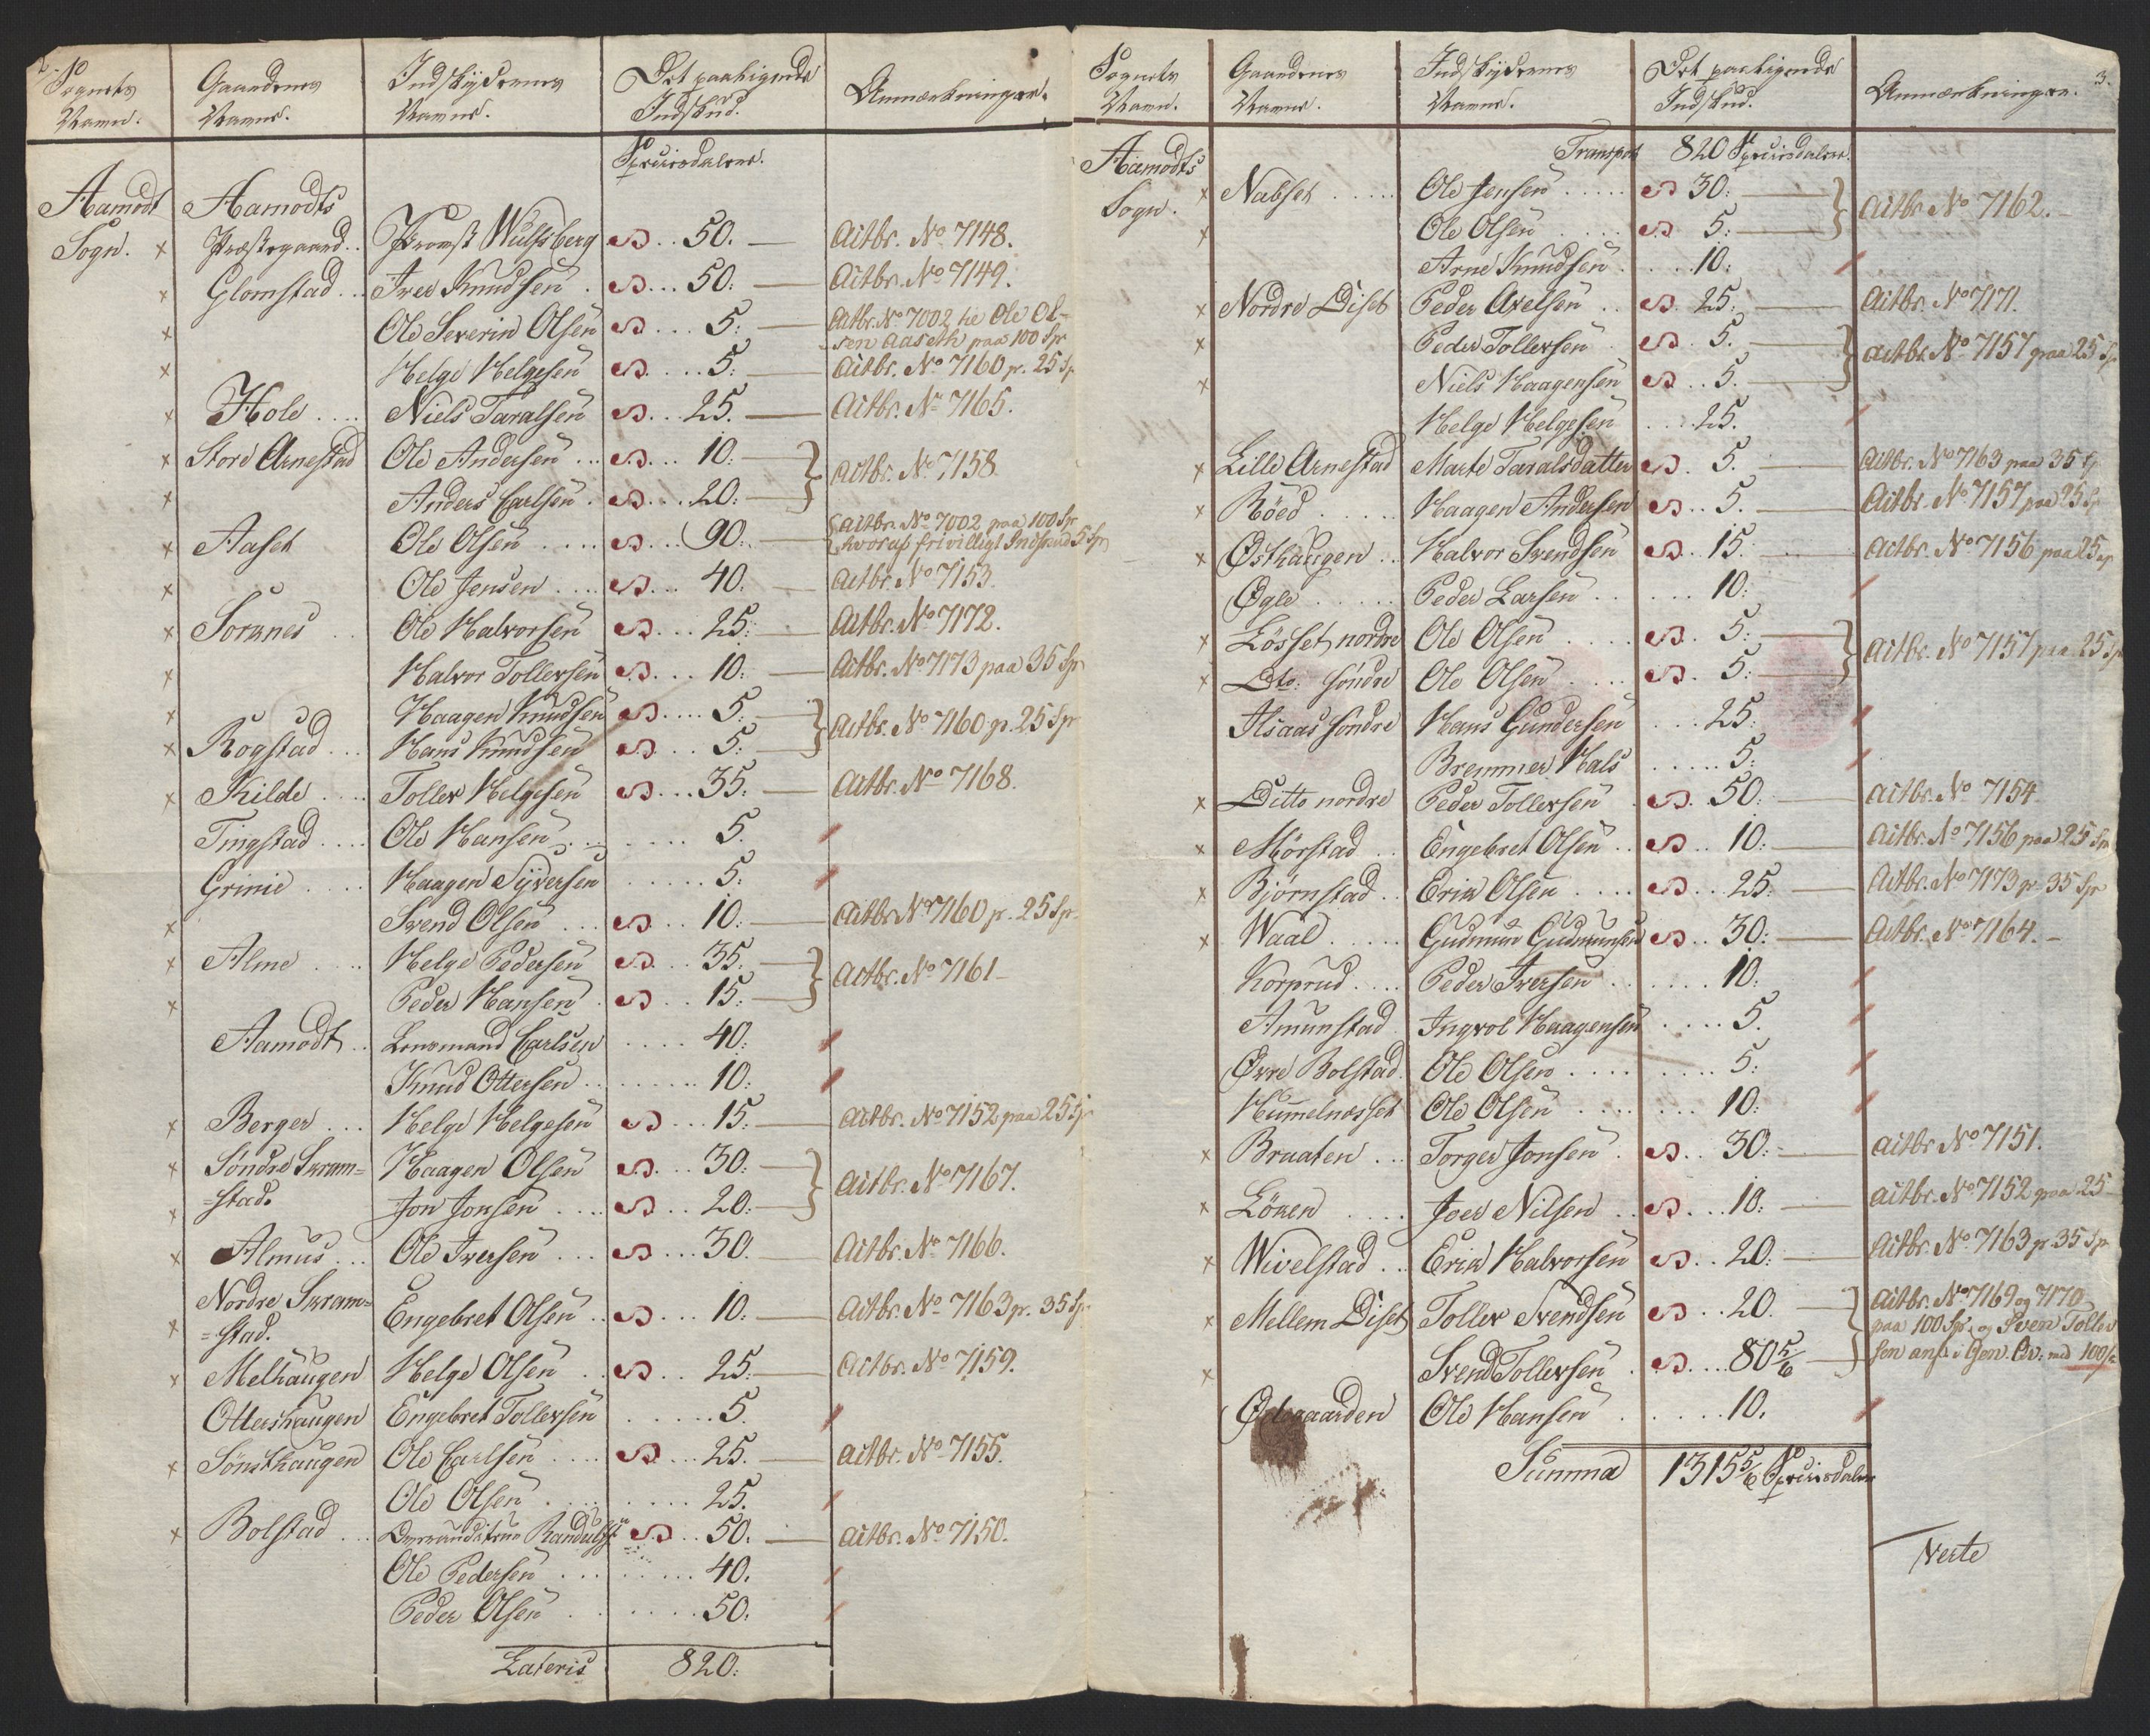 2.
Sognets Navn. Gaardenes Navne. Indskydernes Navne. Det paaligende Indskud. Anmærkninger.
Speciesdaler.
Aamodt Aamodts
Sogn. x Præstegaard.. Provst Wulfsberg .. 50. — Actbr. No 7148.
x Glomstad... Iver Knudsen . ... 50: — Actbr. No 7149.
x Ole Severin Olsen ... 5: — Actbr. No 7002 til Ole Ol-
sen Aaseth paa 100 Sp
x Helge Helgesen .... 5: — Actbr. No 7160 p. 25 Sp
x Hole .... Niels Taralsen ... 25. — Actbr. No 7165.
x Store Arnestad Ole Andersen ... 10: —
x Anders Carlsen . ... 20: — } Actbr. No 7158
x Aaset Ole Olsen .... ... 90: — { Actbr. No 7002 paa 100 Sp
hvoraf frivilligt Indskud 5 Sp
x Ole Jensen .... ... 40. — Actbr. No 7153.
x Sorknes .. Ole Halvorsen ... 25: — Actbr. No 7172.
x Halvor Tollersen ... 10: — Actbr. No 7173 paa 35 Sp
x Haagen Knudsen .... 5: —
x Rogstad ... Hans Knudsen ... 5: — } Actbr. No 7160 p. 25 Sp
x Kilde .... Toller Helgesen ... 35: — Actbr. No 7168.
Tingstad.... Ole Hansen ... 5.
Grinie .... Haagen Syversen ..... 5:
x Svend Olsen ... ... 10: — Actbr No 7160 p. 25 Sp.
x Alme .... Helge Pedersen ... 35. —
x Peder Hansen . .. 15: — } Actbr. No 7161 —
Aamodt .. Lensmand Carlsen .... 40:
Knud Ottersen ........ 10:
x Berger ... Helge Helgesen ... 15: — Actbr. No 7152 paa 25 Sp
x Søndre Skram= Haagen Olsen ... 30: —
x =stad. Jon Jonsen .... .. 20: — } Actbr. No 7167.
x Almus ... Ole Iversen ... ... 30. — Actbr. No 7166.
Nordre Skram=
x =stad. Engebret Olsen .. ... 10: — Actbr. No 7163 p. 35 Sp.
x Melhaugen Helge Olsen .. .. 25: — Actbr. No 7159.
Ottershaugen Engebret Tollersen ..... 5.
x Sønsthaugen Ole Carlsen .... ... 25. — Actbr. No 7155.
Ole Olsen .... .... 25.
x Bolstad ... Randulff .. 50. — Actbr. No 7150.
Ole Pedersen ........ 40.
Peder Olsen ....... 50.
Lateris 820:
3.
Sognets Navn. Gaardenes Navne. Indskydernes Navne. Det paaligende Indskud. Anmærkninger.
Transport 820 Speciesdaler.
Aamodts
Sogn. x Nabset ..... Ole Jensen ..... 30: —
x Ole Olsen .... 5: — } Actbr. No 7162. —
Arne Knudsen .... 10:
x Nordre Diset Peder Axelsen .. 25: — Actbr. No 7171.
x Peder Tollersen . 5. —
x Niels Haagensen .. 5. — } Actbr. No 7157 paa 25 Sp
Helge Helgesen .... 25.
x Lille Arnestad Marte Taralsdatter . 5. — Actbr. No 7163 paa 35 Sp
x Röed ..... Haagen Andersen .. 5. — Actbr. No 7157 paa 25 Sp
x Østhaugen .. Halvor Svendsen .. 15. — Actbr. No 7156 paa 25 Sp
Øgle ..... Peder Larsen ..... 10:
x Løsset nordre Ole Olsen .... . 5: —
x Dto: søndre Ole Olsen .... . 5: — } Actbr. No 7157 paa 25 Sp
Ilsaas søndre Hans Gundersen ... 25:
Bremmer Hals ..... 5:
x Ditto nordre Peder Tollersen . 50: — Actbr. No 7154
x Mörstad .. Engebret Olsen .. .. 10: — Actbr. No 7156 paa 25 Sp
x Bjørnstad .. Erik Olsen .... .. 25: — Actbr. No 7173 p. 35 Sp
x Waal ..... Gudmun Gudmunsen .. 30: — Actbr. No 7164. —
Korprud .... Peder Iversen ....... 10:
Amunstad Ingvol Haagensen .... 5.
Øvre Bolstad Ole Olsen ........ 5:
Hummelnesset Ole Olsen ....... 10:
x Braaten ... Torger Jonsen . .. 30: — Actbr No 7151.
x Löken .... Joer Nilsen .. ... 10: — Actbr. No 7152 paa 25
x Wivelstad .. Erik Halvorsen .. 20: — Actbr. No 7163 p. 35 Sp
x Mellem Diset Toller Svendsen .. 20. — } Actbr. No 7169 og 7170
paa 100 Sp. og Sven Toller
x Svend Tollersen . ... 80 5/6 — sen anf. i Gen. Qv: med 100 Sp
Ødegaarden Ole Hansen ...... 10.
Summa 1315 5/6 Speciesdaler
Verte